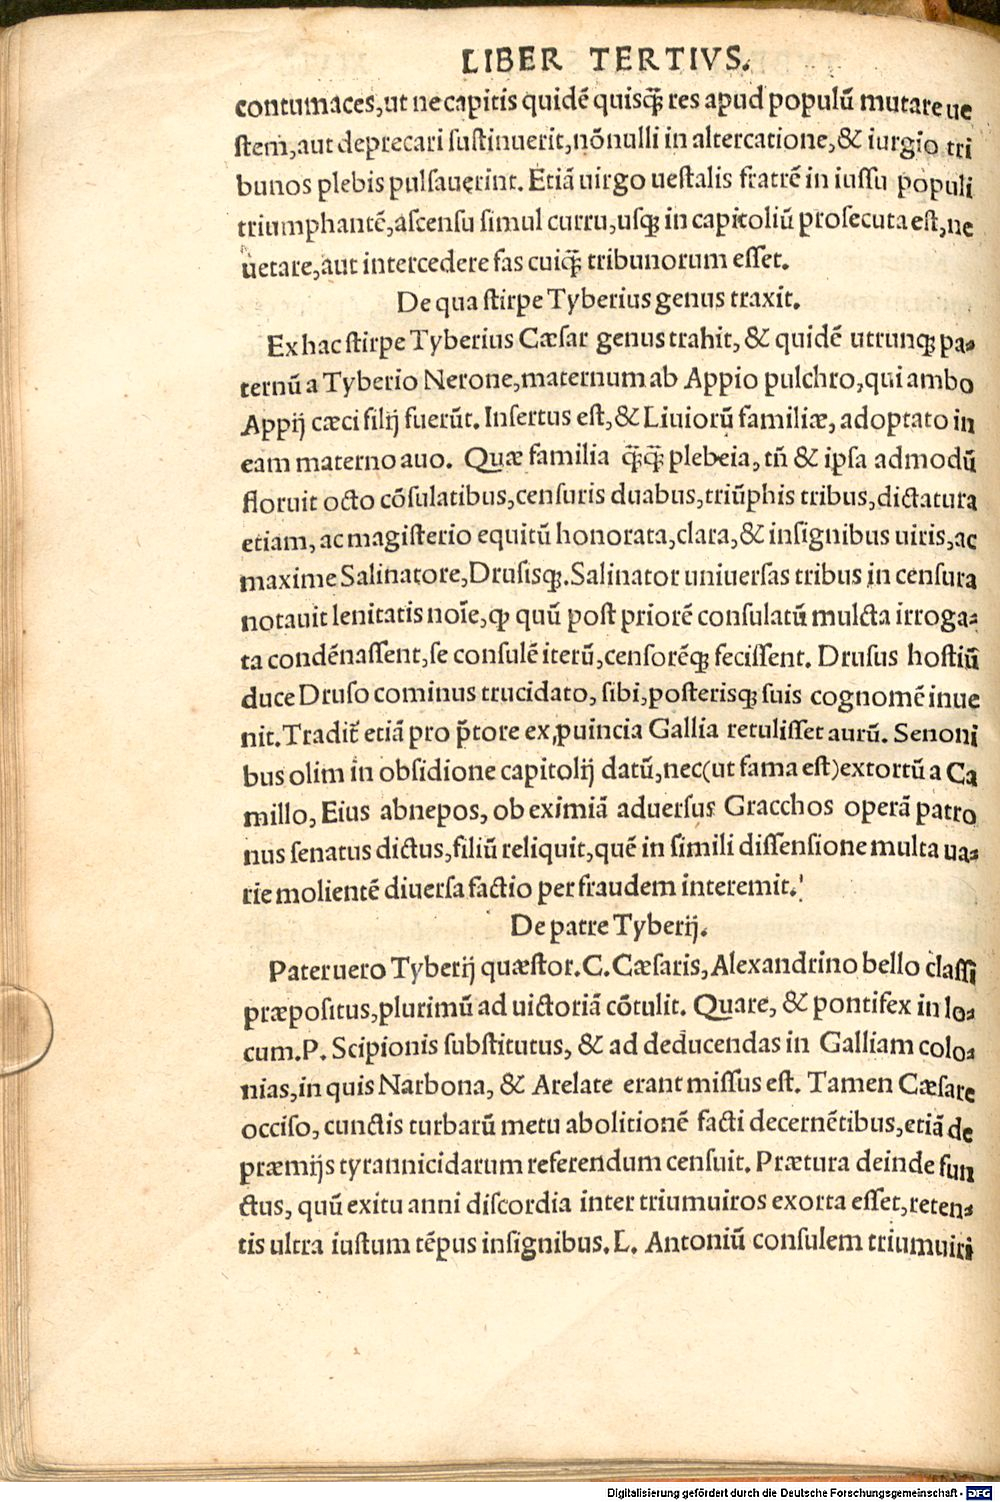 LIBER TERTIVS.
contumaces,ut ne capitis quidē quisq̄ȝ res apud populū mutare ue
ſtem,aut deprecari ſuſtinuerit,nōnulli in altercatione,& iurgio tri
bunos plebis pulſauerint. Etiā uirgo ueſtalis fratrē in iuſſu populi
triumphantē,aſcenſu ſimul curru,uſqȝ in capitoliū proſecuta eſt,ne
uetare,aut intercedere fas cuiq̄ȝ tribunorum eſſet.
De qua ſtirpe Tyberius genus traxit.
Ex hac ſtirpe Tyberius Cæſar genus trahit, & quidē utrunqȝ pa⸗
ternū a Tyberio Nerone,maternum ab Appio pulchro,qui ambo
Appij cæci filij fuerūt. Inſertus eſt,& Liuiorū familiæ, adoptato in
eam materno auo. Quæ familia q̄ȝq̄ȝ plebeia, tñ & ipſa admodū
floruit octo cōſulatibus,cenſuris duabus,triūphis tribus,dictatura
etiam, ac magiſterio equitū honorata,clara,& inſignibus uiris,ac
maxime Salinatore,Druſisqȝ.Salinator uniuerſas tribus in cenſura
notauit lenitatis noīe,ꝙ quū poſt priorē conſulatū mulcta irroga⸗
ta condēnaſſent,ſe conſulē iterū,cenſorēqȝ feciſſent. Druſus hoſtiū
duce Druſo cominus trucidato, ſibi,poſterisqȝ ſuis cognomē inue
nit.Tradit̄ etiā pro p̄tore ex ꝓuincia Gallia retuliſſet aurū. Senoni
bus olim in obſidione capitolij datū,nec(ut fama eſt)extortū a Ca
millo, Eius abnepos, ob eximiā aduerſus Gracchos operā patro
nus ſenatus dictus,filiū reliquit,quē in ſimili diſſenſione multa ua⸗
rie molientē diuerſa factio per fraudem interemit.
De patre Tyberij.
Pater uero Tyberij quæſtor.C.Cæſaris, Alexandrino bello claſſi
præpoſitus,plurimū ad uictoriā cōtulit. Quare, & pontifex in lo⸗
cum.P. Scipionis ſubſtitutus, & ad deducendas in Galliam colo⸗
nias,in quis Narbona, & Arelate erant miſſus eſt. Tamen Cæſare
occiſo, cunctis turbarū metu abolitionē facti decernētibus,etiā de
præmijs tyrannicidarum referendum cenſuit. Prætura deinde fun
ctus, quū exitu anni diſcordia inter triumuiros exorta eſſet,reten⸗
tis ultra iuſtum tēpus inſignibus.L. Antoniū conſulem triumuiri
Digitalisierung gefördert durch die Deutsche Forschungsgemeinschaft - DFG